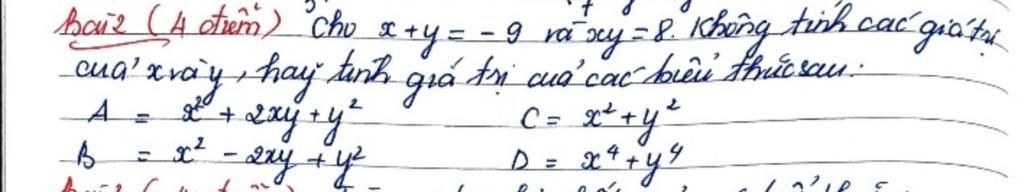 Bài 2 (4 điểm) Cho x + y = - 9 và xy = 8. Không tính các giá trị
của x và y, hãy tính giá trị của các biểu thức sau:
A = x² + 2xy + y² C = x² + y²
B = x² - 2xy + y² D = x⁴ + y⁴